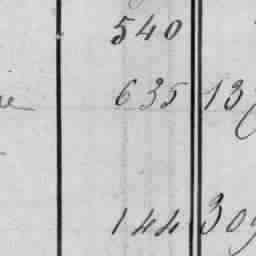 540
635 13
144 309